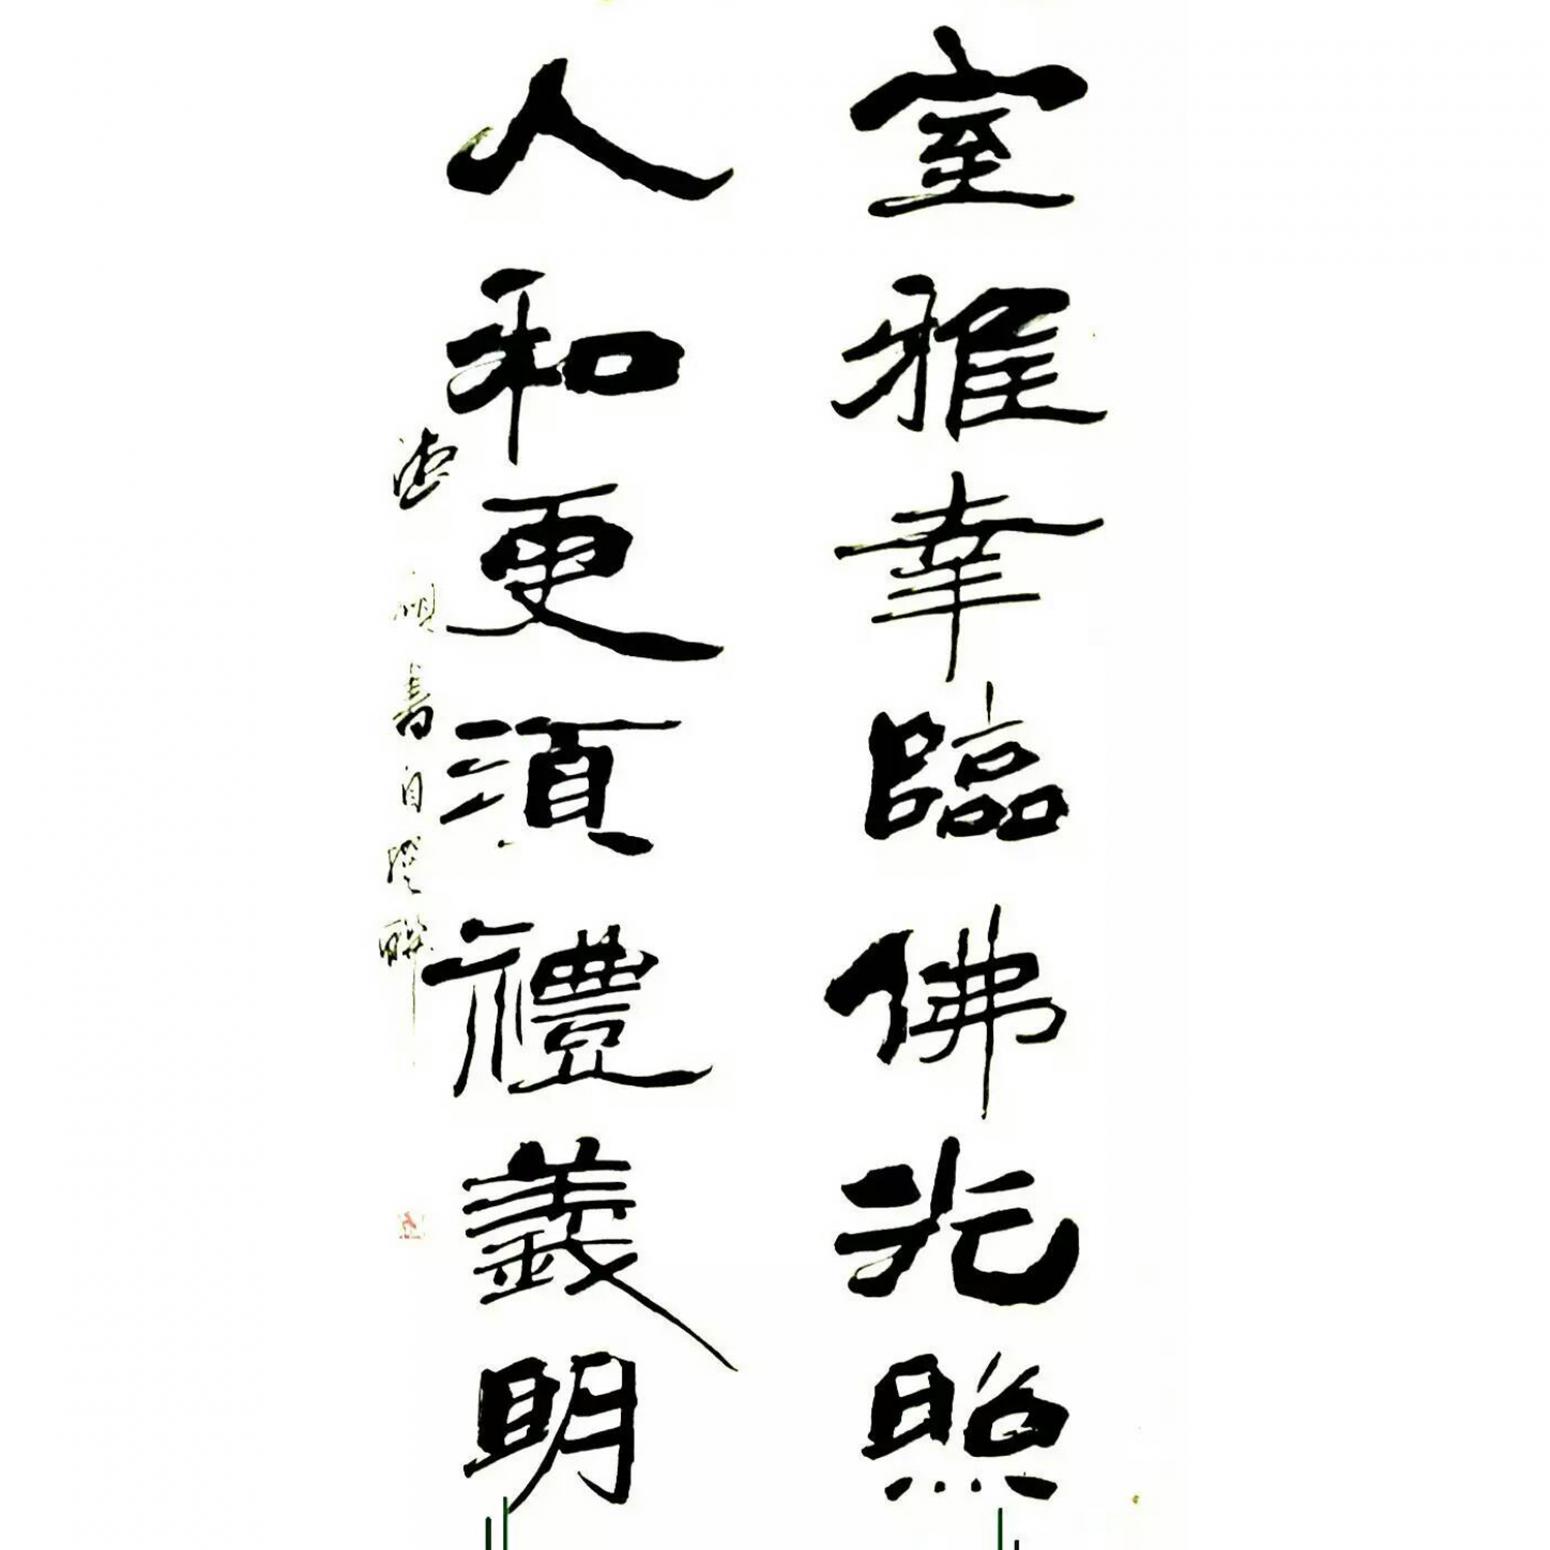 室雅幸臨佛光照
人和更須禮義明
書自撰聯